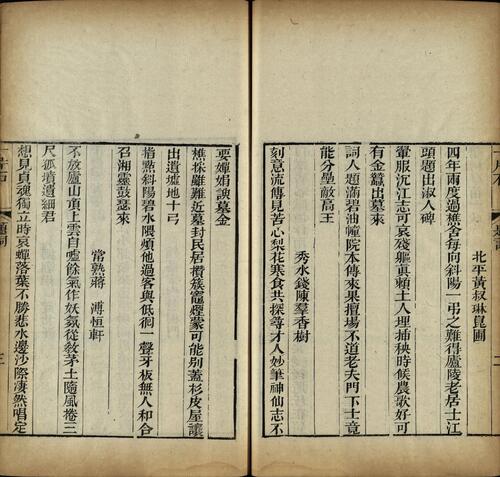 北平黃叔琳崑圃
四年兩度過樵舍每向斜陽一弔之難得廬陵老居士江
頭題出淑人碑
翬服沉江志可哀殘軀眞賴土人埋插秧時候農歌好可
有金鑱出墓來
詞人題滿碧油幢院本傳來果擅場不道老夫門下士竟
能分壘敵高王
秀水錢陳羣香樹
刻意流傳見苦心梨花寒食共探尋才人妙筆神仙志不
要嬋娟諛墓金
樵採雖難近墓封民居攢簇竈煙蒙可能別蓋杉皮屋讓
出遺墟地十弓
指點斜陽碧水隈煩他過客與低徊一聲牙板無人和合
召湘靈鼓瑟來
常熟蔣溥恒軒
不放廬山頂上雲自噓餘氣作妖氛從敎茅土隨風捲三
尺孤墳遺細君
想見貞魂獨立時哀蟬落葉不勝悲水邊沙際凄然唱定
一片石
題詞
二
三